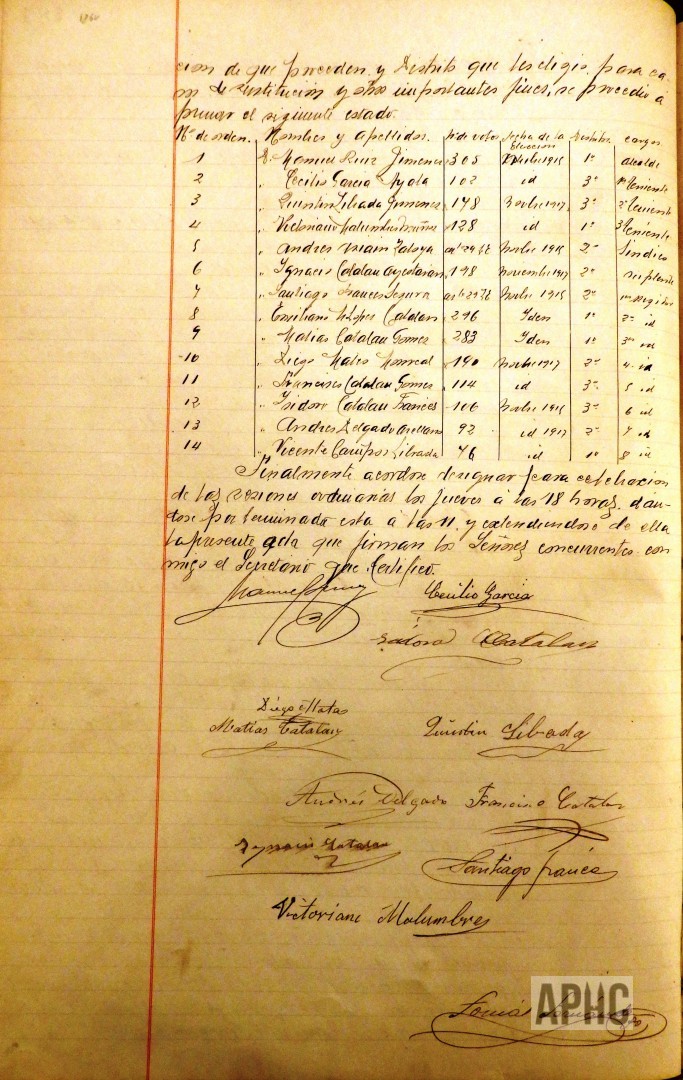 cion de que proceden y Distrito que les eligio, para
de sustitución y otros importantes fines, se procedio á
formar el siguiente estado.
Nº de orden. Nombres y apellidos. Nº de votos fecha de la elección Distritos cargos
1 D. Manuel Ruiz Jimenez 305 1º alcalde
2 " Cecilio Garcia Ayala 102 id 3º 1º teniente
3 " Quintin Librada Gimenez 148 1917 3º 2º teniente
4 " Victoriano Malumbres 128 id 1º 3º teniente
5 " Andres artº 29 1915 2º Sindico
6 " Ignacio Catalan 198 noviembre 1917 2º suplente
7 " Santiago Frances Segura artº 29 1915 2º 1er regidor
8 " Emiliano Lopez Catalan 296 Iden 1º 2º id
9 " Matias Catalan Gomez 283 Iden 1º 3er id
10 " Diego Mates Monreal 190 1917 2º 4º id
11 " Francisco Catalan Gomez 114 id 3º 5 id
12 " Isidoro Catalan Frances 106 1915 3º 6 id
13 " Andres Delgado Arellano 92 id 1917 2º 7 id
14 " Vicente Campos Librada 76 id 1º 8 id
Finalmente acordose designar para celebracion
de las sesiones ordinarias los jueves á las 18 horas, dan-
dose por terminada esta á las 11, y extendiendose de ella
la presente acta que firman los Señores concurrentes con-
migo el Secretario que Certifico.
Manuel Ruiz
Cecilio Garcia
Isidoro Catalan
Diego Matas
Matias Catalan
Quintin Librada
Andrés Delgado
Francisco Catalan
Ignacio Catalan
Santiago francés
Victoriano Malumbres
APHC